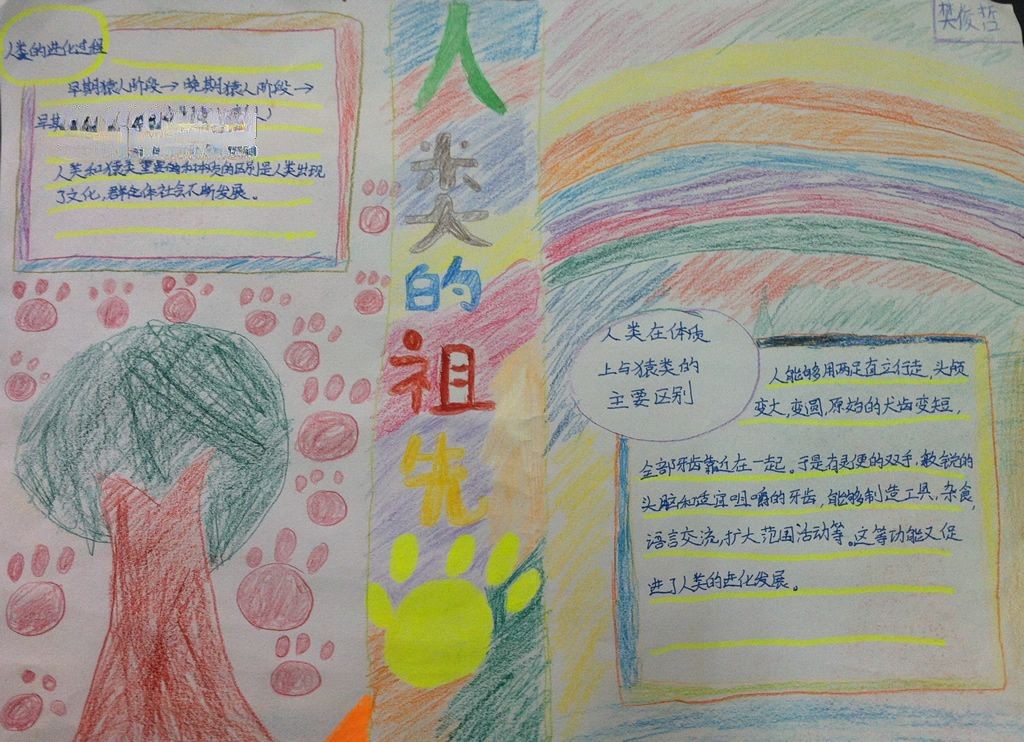 人类的进化过程
早期猿人阶段→晚期猿人阶段→
早期
人类和猿类重要的和本质的区别是人类出现
了文化,群定体社会不断发展。
人类的祖先
樊俊哲
人类在体质
上与猿类的
主要区别
人能够用两足直立行走,头颅
变大,变圆,原始的犬齿变短,
全部牙齿靠近在一起。于是有灵便的双手,敏锐的
头脑和适宜咀嚼的牙齿,能够制造工具,杂食,
语言交流,扩大范围活动等。这等功能又促
进了人类的进化发展。